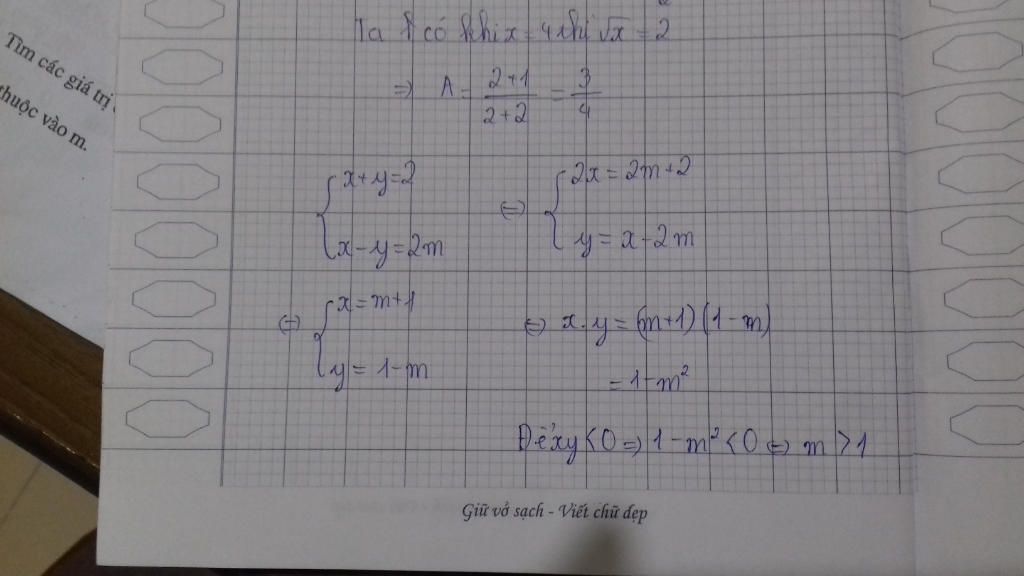 Tìm các giá trị
thuộc vào m.
Ta có khi x = 4 thì √x = 2
=> A = (2+1)/(2+2) = 3/4
{ x + y = 2 <=> { 2x = 2m + 2
x - y = 2m y = x - 2m
<=> { x = m + 1 <=> x.y = (m+1)(1-m)
y = 1 - m = 1 - m²
Để xy < 0 => 1 - m² < 0 <=> m > 1
Giữ vở sạch - Viết chữ đẹp